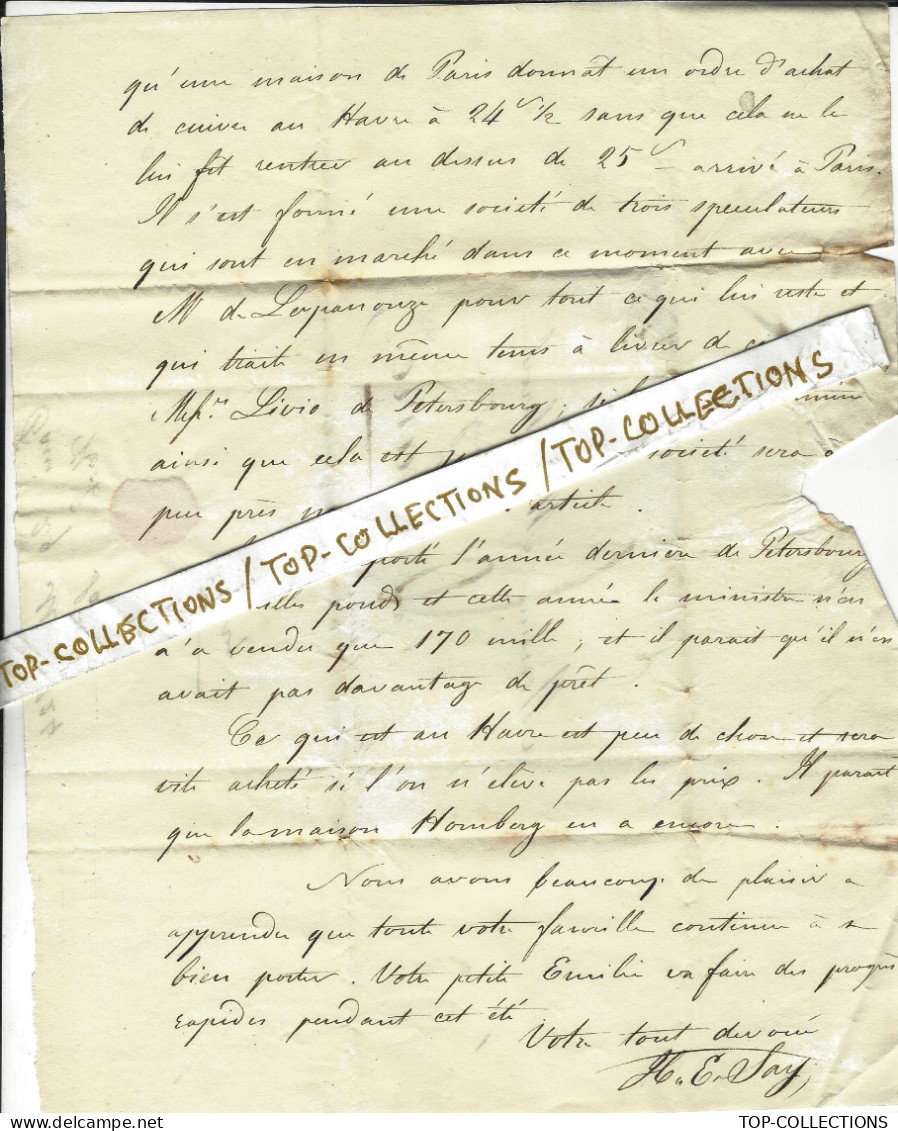 qu'une maison de Paris donnât un ordre d'achat
de cuivre au Havre à 24 s 1/2 sans que cela ne le
lui fit rentrer au dessus de 25 s - arrivé à Paris.
Il s'est formé une société de trois speculateurs
qui sont en marché dans ce moment avec
Mr de Lapanouze pour tout ce qui lui reste et
qui traite en même tems à livrer de
Livio de Petersbourg;
ainsi que cela est société sera à
peu près article.
porté l'année dernière de Petersbourg
pouds et cette année le ministre n'en
a vendu que 170 mille; et il parait qu'il n'en
avait pas davantage de prêt.
Ce qui est au Havre est peu de chose et sera
vite acheté si l'on n'élève pas les prix. Il parait
que la maison Homberg en a encore.
Nous avons beaucoup de plaisir a
apprendre que toute votre famille continue à se
bien porter. Votre petite Emilie va faire des progrès
rapides pendant cet été
Votre tout devoué
H. E. Say
TOP-COLLECTIONS / TOP-COLLECTIONS / TOP-COLLECTIONS
TOP-COLLECTIONS